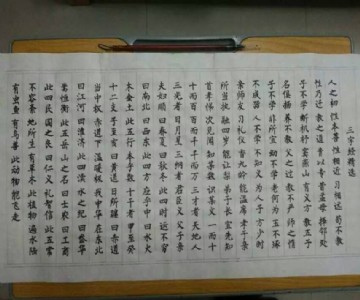 三字经精选
人之初性本善性相近习相远苟不教
性乃迁教之道贵以专昔孟母择邻处
子不学断机杼窦燕山有义方教五子
名俱扬养不教父之过教不严师之惰
子不学非所宜幼不学老何为玉不琢
不成器人不学不知义为人子方少时
亲师友习礼仪香九龄能温席孝于亲
所当执融四岁能让梨弟于长宜先知
首孝悌次见闻知某数识某文一而十
十而百百而千千而万三才者天地人
三光者日月星三纲者君臣义父子亲
夫妇顺曰春夏曰秋冬此四时运不穷
曰南北曰西东此四方应乎中曰水火
木金土此五行本乎数十干者甲至癸
十二支子至亥曰黄道日所躔曰赤道
当中权赤道下温暖极我中华在东北
曰江河曰淮济此四渎水之纪曰岱华
嵩恒衡此五岳山之名曰士农曰工商
此四民国之良曰仁义礼智信此五常
不容紊地所生有草木此植物遍水陆
有虫鱼有鸟兽此动物能飞走